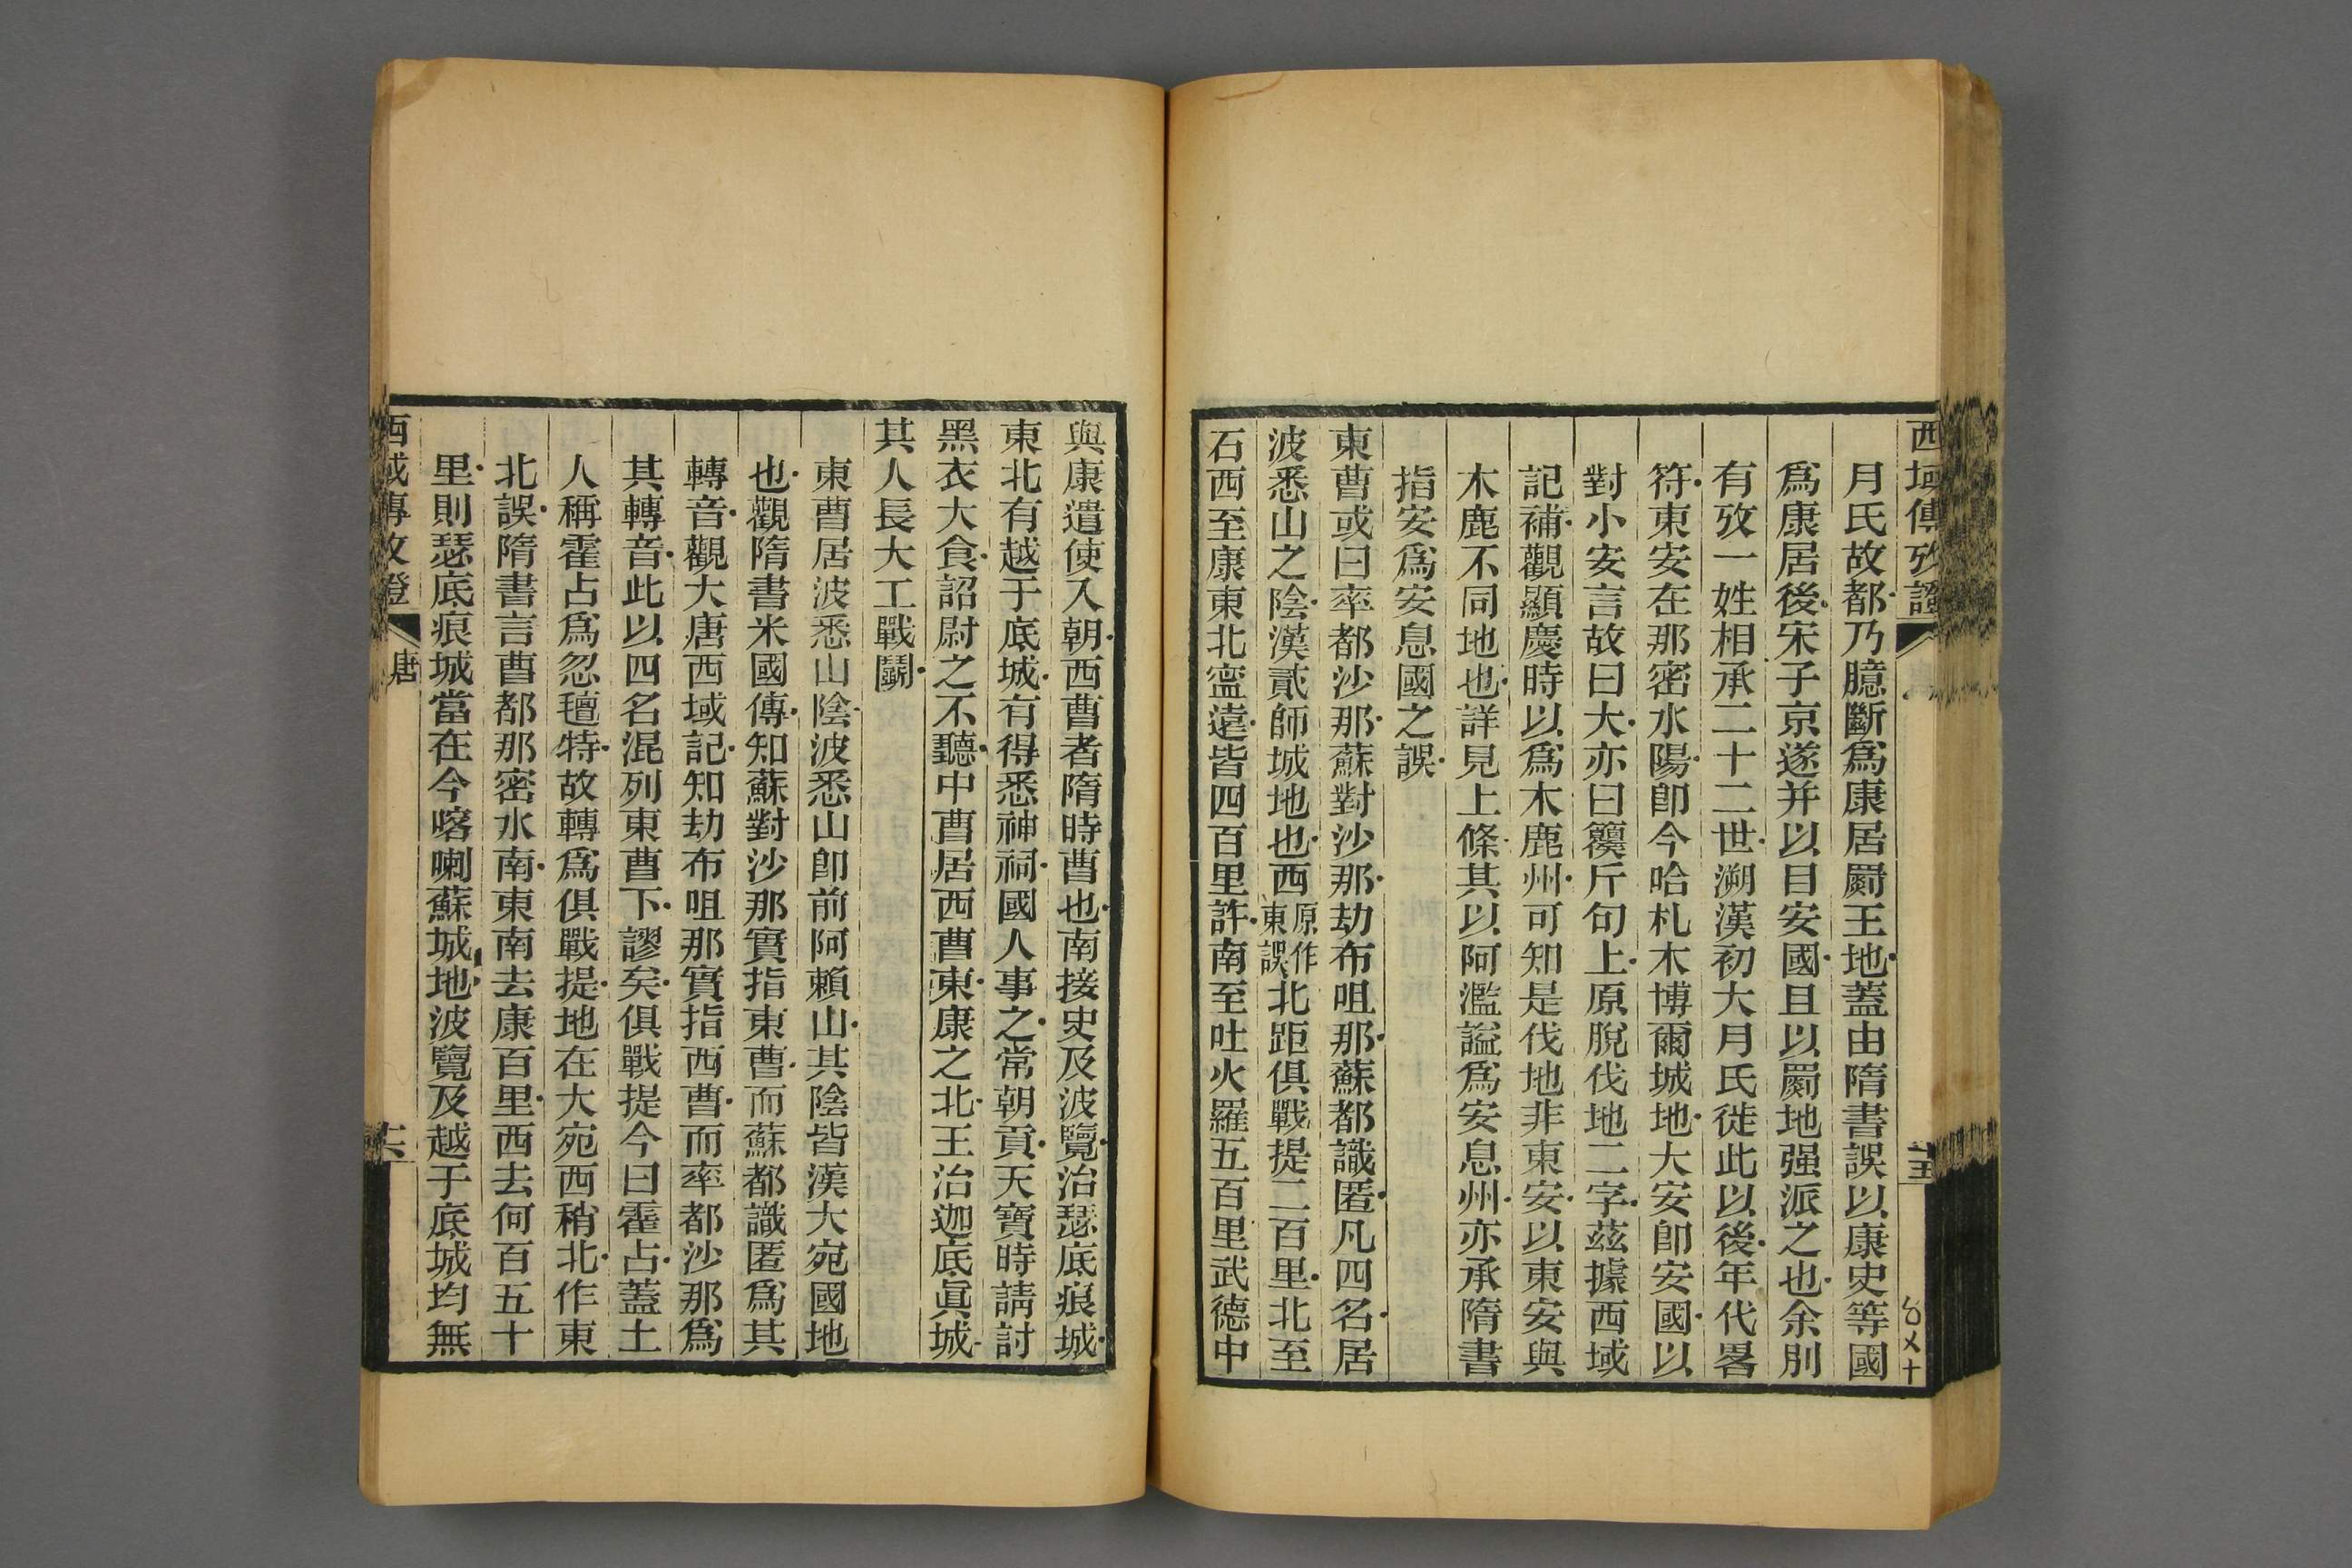 西域傳攷證
月氏故都乃臆斷爲康居罽王地蓋由隋書誤以康史等國
爲康居後宋子京遂并以目安國且以罽地强派之也余別
有攷一姓相承二十二世溯漢初大月氏徙此以後年代畧
符東安在那密水陽卽今哈札木博爾城地大安卽安國以
對小安言故曰大亦曰籅斤句上原脫伐地二字茲據西域
記補觀顯慶時以爲木鹿州可知是伐地非東安以東安與
木鹿不同地也詳見上條其以阿濫謐爲安息州亦承隋書
指安爲安息國之誤
東曹或曰率都沙那蘇對沙那劫布呾那蘇都識匿凡四名居
波悉山之陰漢貳師城地也西原作東誤北距俱戰提二百里北至
石西至康東北寍遠皆四百里許南至吐火羅五百里武德中
與康遣使入朝西曹者隋時曹也南接史及波覽治瑟底痕城
東北有越于底城有得悉神祠國人事之常朝貢天寶時請討
黑衣大食詔尉之不聽中曹居西曹東康之北王治迦底眞城
其人長大工戰鬭
東曹居波悉山陰波悉山卽前阿賴山其陰皆漢大宛國地
也觀隋書米國傳知蘇對沙那實指東曹而蘇都識匿爲其
轉音觀大唐西域記知劫布呾那實指西曹而率都沙那爲
其轉音此以四名混列東曹下謬矣俱戰提今曰霍占蓋土
人稱霍占爲忽氊特故轉爲俱戰提地在大宛西稍北作東
北誤隋書言曹都那密水南東南去康百里西去何百五十
里則瑟底痕城當在今喀喇蘇城地波覽及越于底城均無
西域傳攷證
唐